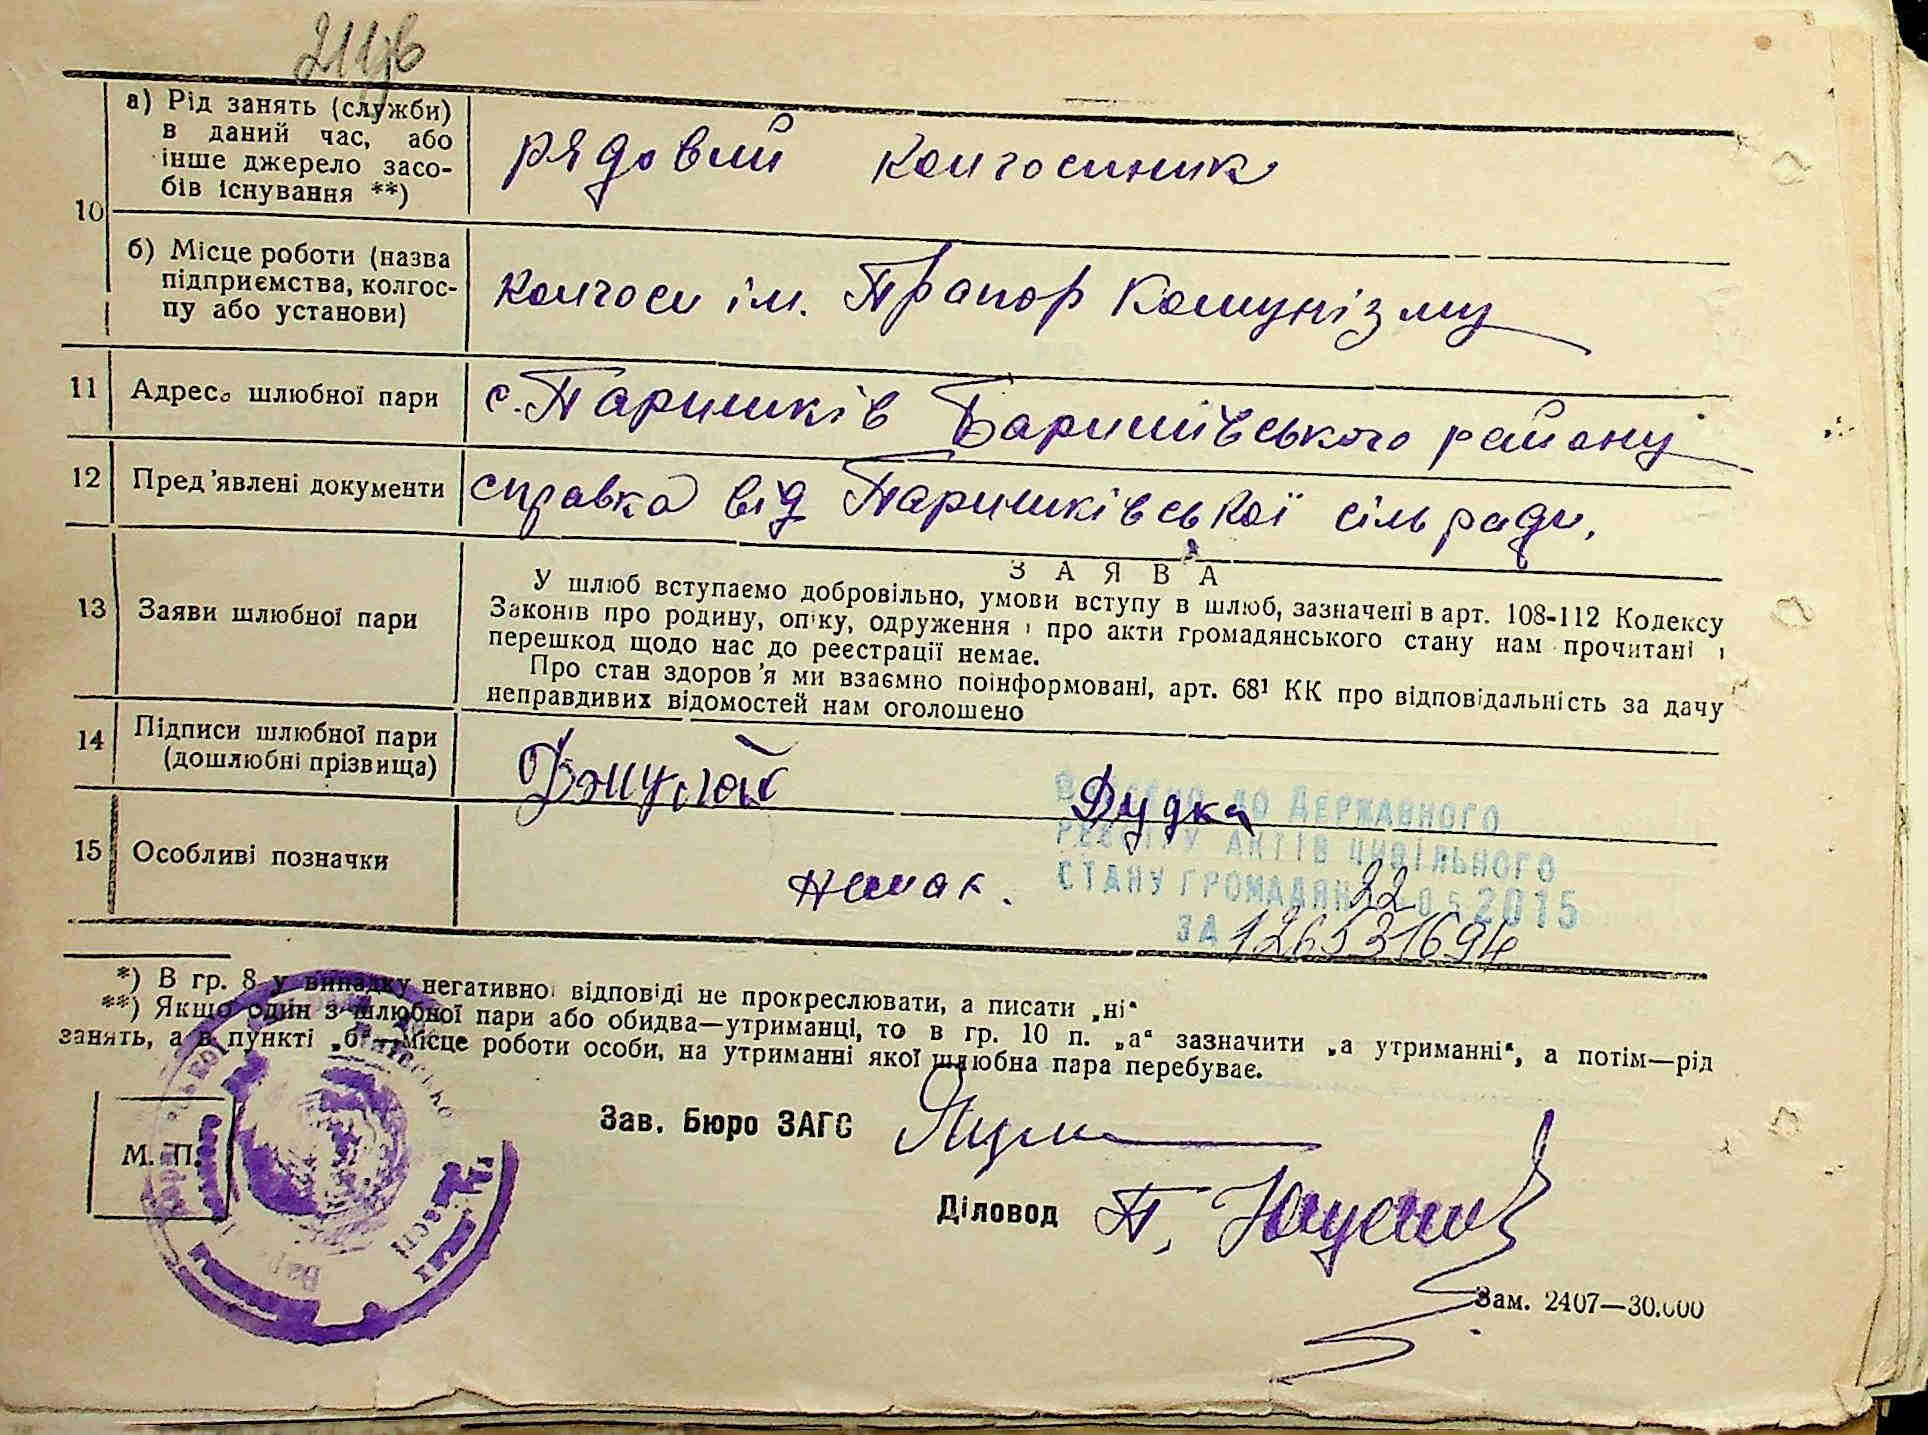 а) Рід занять (служби)
в даний час, або
інше джерело засо-
бів існування **)
рядовий колгоспник
10
б) Місце роботи (назва
підприємства, колгос-
пу або установи)
колгосп ім. Прапор Комунізму
11 Адреса шлюбної пари с. Паришків Баришівського району
12 Пред'явлені документи справка від Паришківської сільради.
13 Заяви шлюбної пари
ЗАЯВА
У шлюб вступаємо добровільно, умови вступу в шлюб, зазначені в арт. 108-112 Кодексу
Законів про родину, опіку, одруження і про акти громадянського стану нам прочитані і
перешкод щодо нас до реєстрації немає.
Про стан здоров'я ми взаємно поінформовані, арт. 68¹ КК про відповідальність за дачу
неправдивих відомостей нам оголошено
14 Підписи шлюбної пари
(дошлюбні прізвища)
Джулай Дудка
ДО ДЕРЖАВНОГО
РЕЄСТРУ АКТІВ ЦИВІЛЬНОГО
СТАНУ ГРОМАДЯН 22 05 2015
ЗА 126531694
15 Особливі позначки
немає.
*) В гр. 8 у випадку негативної відповіді не прокреслювати, а писати „ні“
**) Якщо один з шлюбної пари або обидва—утриманці, то в гр. 10 п. „а“ зазначити „а утриманні“, а потім—рід
занять, а в пункті „б“—місце роботи особи, на утриманні якої шлюбна пара перебуває.
Зав. Бюро ЗАГС
М. П.
Діловод П.
Зам. 2407—30.000